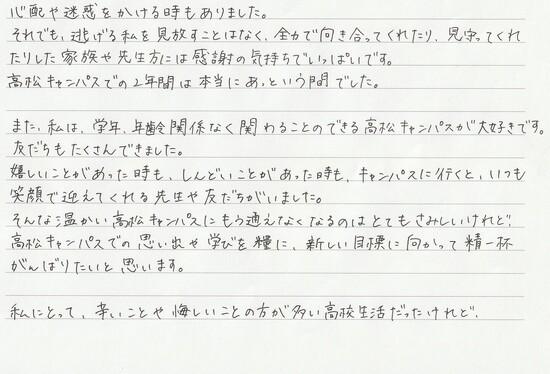 心配や迷惑をかける時もありました。
それでも、逃げる私を見放すことはなく、全力で向き合ってくれたり、見守ってくれ
たりした家族や先生方には感謝の気持ちでいっぱいです。
高松キャンパスでの2年間は本当にあっという間でした。
また、私は、学年、年齢関係なく関わることのできる高松キャンパスが大好きです。
友だちもたくさんできました。
嬉しいことがあった時も、しんどいことがあった時も、キャンパスに行くと、いつも
笑顔で迎えてくれる先生や友だちがいました。
そんな温かい高松キャンパスにもう通えなくなるのはとてもさみしいけれど、
高松キャンパスでの思い出や学びを糧に、新しい目標に向かって精一杯
がんばりたいと思います。
私にとって、辛いことや悔しいことの方が多い高校生活だったけれど、